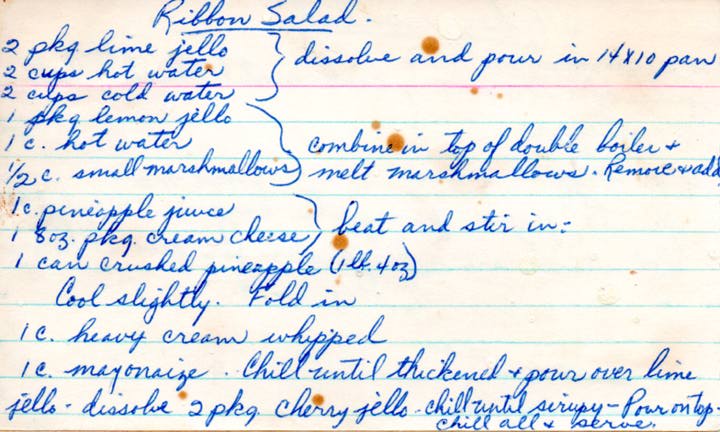 Ribbon Salad.
2 pkg lime jello
2 cups hot water } dissolve and pour in 14x10 pan
2 cups cold water
1 pkg lemon jello
1 c. hot water } combine in top of double boiler +
1/2 c. small marshmallows melt marshmallows. Remove + add
1 c. pineapple juuce
1 8oz. pkg. cream cheese } beat and stir in:
1 can crushed pineapple (1 lb. 4 oz)
Cool slightly. Fold in
1 c. heavy cream whipped
1 c. mayonaize. Chill until thickened + pour over lime
jello - dissolve 2 pkg. cherry jello - chill until sirupy - Pour on top -
chill all + serve.